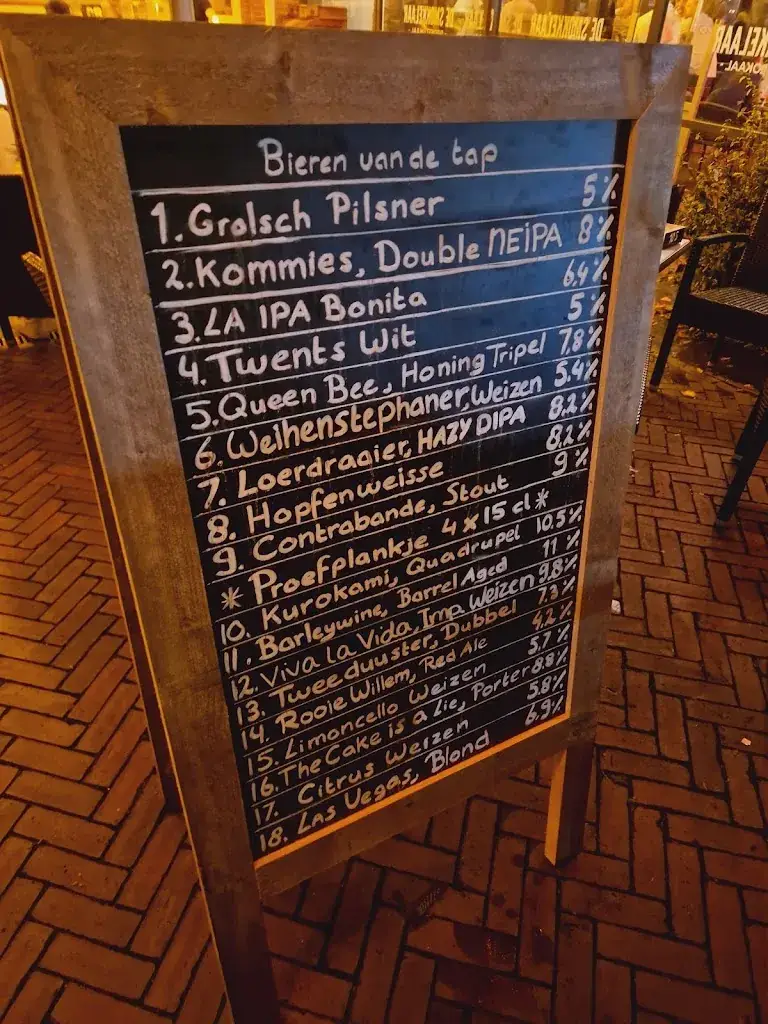 DE SMOKKELAAR
KELAAR
LOKAAL
Bieren van de tap
1. Grolsch Pilsner 5%
2. Kommies, Double NEIPA 8%
3. LA IPA Bonita 6,4%
4. Twents Wit 5%
5. Queen Bee, Honing Tripel 7,8%
6. Weihenstephaner, Weizen 5.4%
7. Loerdraaier, HAZY DIPA 8,2%
8. Hopfenweisse 8,2%
9. Contrabande, Stout 9%
* Proefplankje 4 x 15 cl *
10. Kurokami, Quadrupel 10.5%
11. Barleywine, Barrel Aged 11 %
12. Viva la Vida, Imp. Weizen 9.8%
13. Tweeduuster, Dubbel 7.3%
14. Rooie Willem, Red Ale 4,2%
15. Limoncello Weizen 5,7 %
16. The Cake is a Lie, Porter 8.8%
17. Citrus Weizen 5.8%
18. Las Vegas, Blond 6.9%